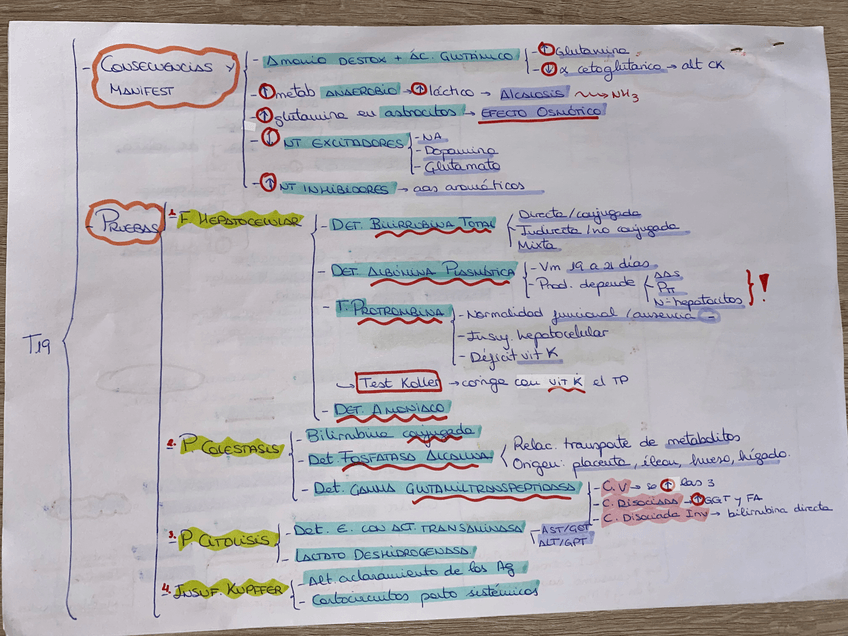 T19
- CONSECUENCIAS Y
MANIFEST
- AMONIO DESTOX + ÁC. GLUTÁMICO
- ↑ Glutamina
- ↓ α cetoglutárico → alt CK
- ↑ metab ANAEROBIO → ↑ láctico → Alcalosis NH3
- ↑ glutamina en astrocitos → EFECTO OSMÓTICO
- ↓ NT EXCITADORES
- NA
- Dopamina
- Glutamato
- ↑ NT INHIBIDORES → aas aromáticos
- PRUEBAS
1. F. HEPATOCELULAR
- DET. BILIRRUBINA TOTAL
Directa/conjugada
Indirecta/no conjugada
Mixta
- DET. ALBÚMINA PLASMÁTICA
- Vm 19 a 21 días
- Prod. depende
AAS
Pπ
Nº hepatocitos
!
- T. PROTROMBINA
- Normalidad funcional /ausencia -
- Insuf. hepatocelular
- Déficit vit K
→ Test Koller → corrige con vit K el TP
- DET. AMONIACO
2. P. COLESTASIS
- Bilirrubina conjugada
- Det FOSFATASA ALCALINA
Relac. transporte de metabolitos
Origen: placenta, íleon, hueso, hígado.
- Det. GAMMA GLUTAMILTRANSPEPTIDASA
- C.V → se ↑ las 3
- C. Disociada → ↑ GGT y FA
- C. Disociada Inv → bilirrubina directa
3. P CITOLISIS
- Det. E. CON ACT. TRANSAMINASA
AST/GOT
ALT/GPT
- LACTATO DESHIDROGENASA
4. INSUF. KUPFFER
- Alt. aclaramiento de los Ag
- Cortocircuitos porto sistémicos